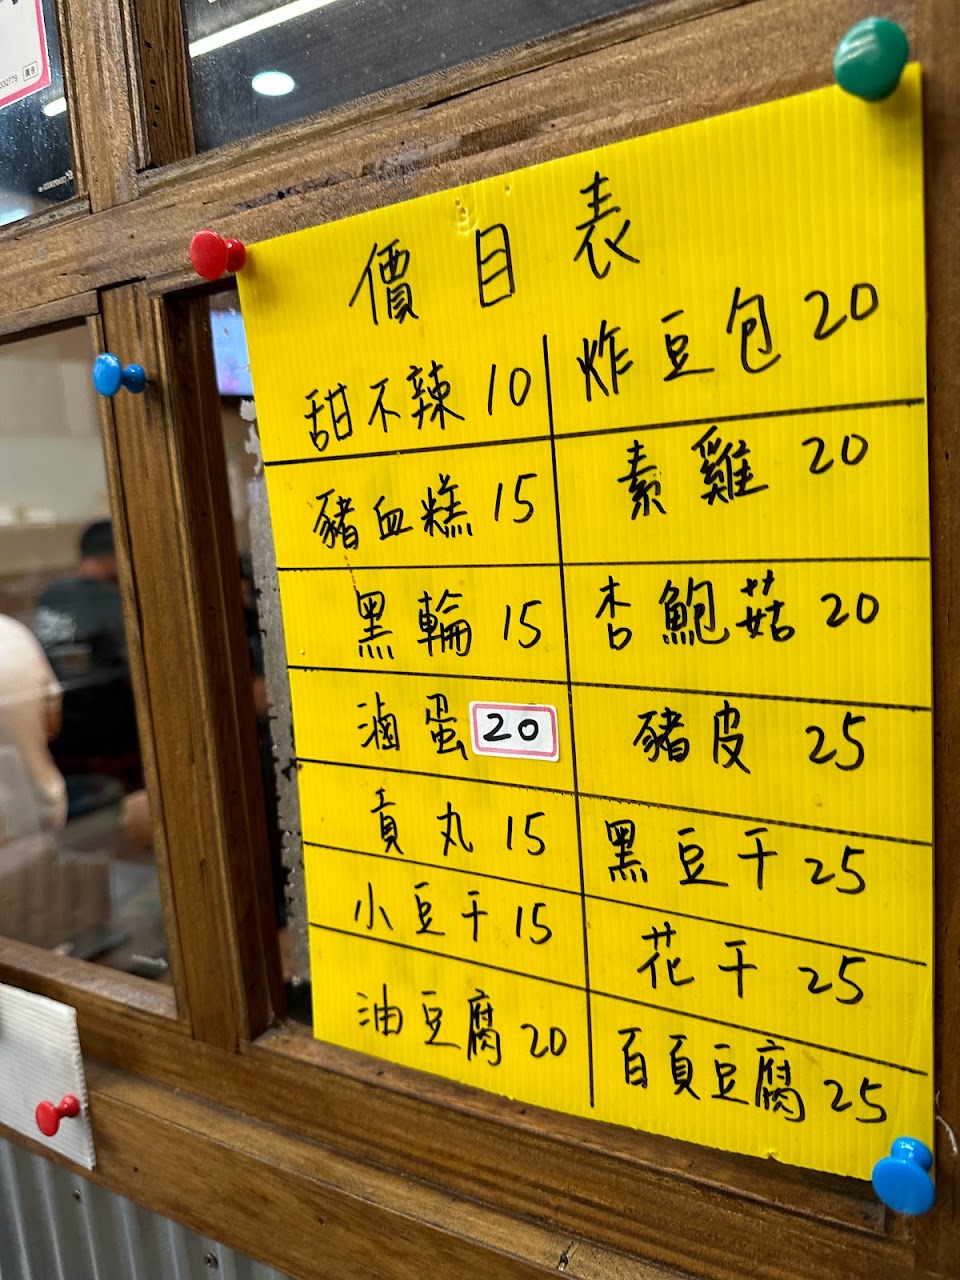 價目表
甜不辣 10
豬血糕 15
黑輪 15
滷蛋 20
貢丸 15
小豆干 15
油豆腐 20
炸豆包 20
素雞 20
杏鮑菇 20
豬皮 25
黑豆干 25
花干 25
百頁豆腐 25